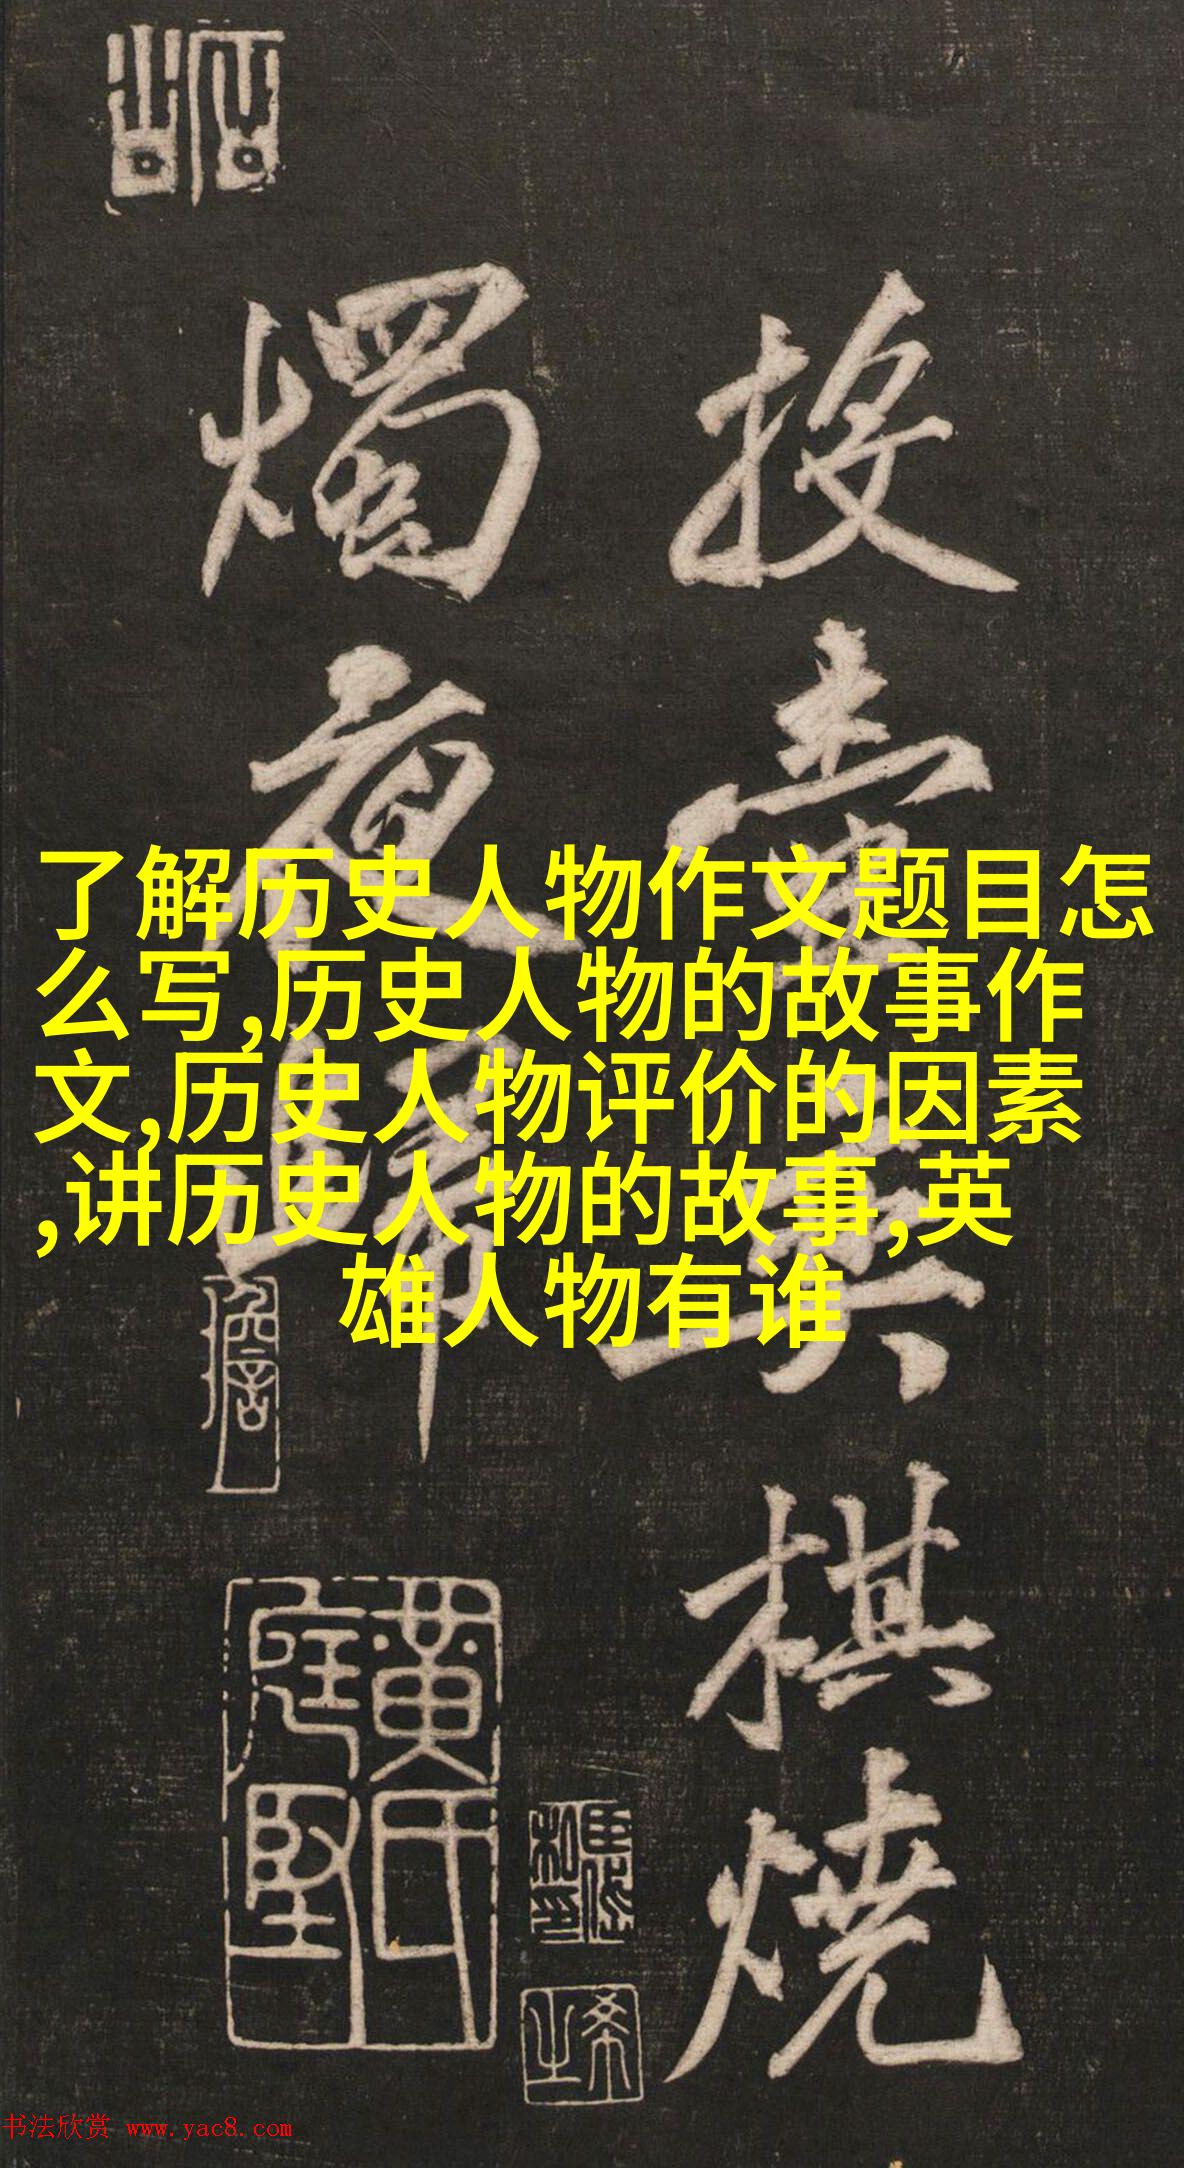 投壺弈棋燒
燭夜歸
黃氏庭堅
了解历史人物作文题目怎
么写,历史人物的故事作
文,历史人物评价的因素
,讲历史人物的故事,英
雄人物有谁
书法欣赏 www.yac8.com